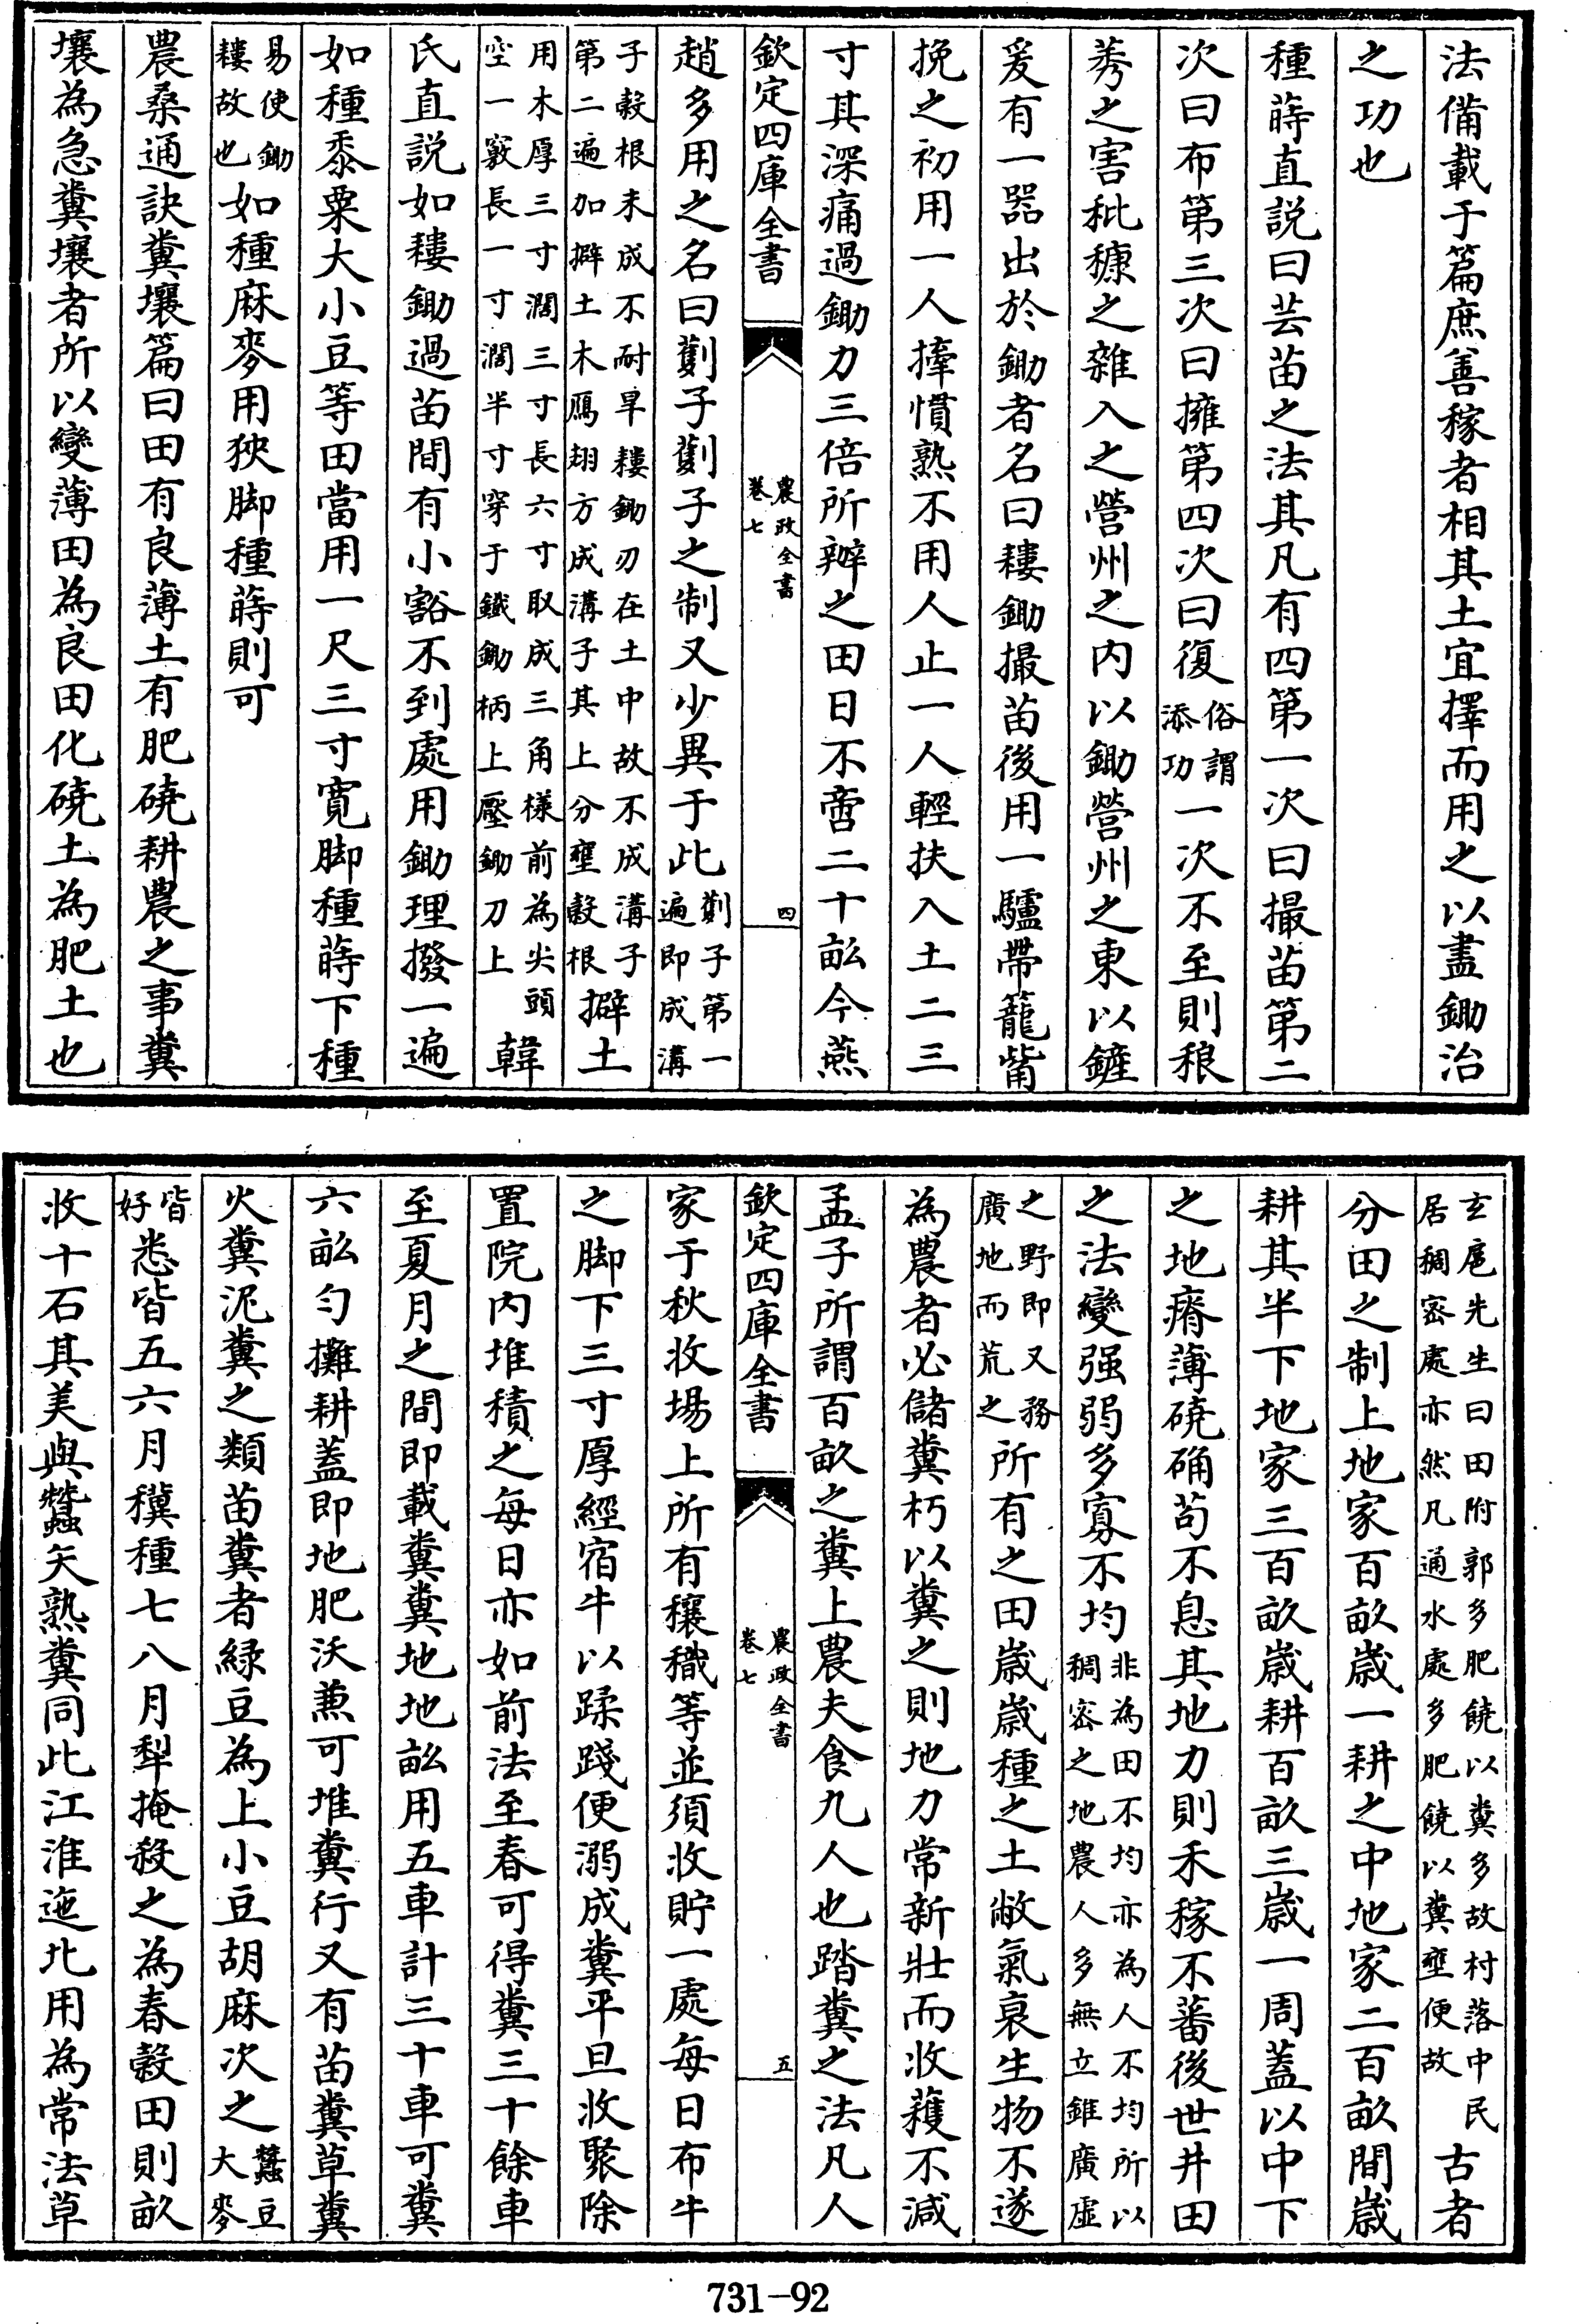 法備載于篇庶善稼者相其土宜擇而用之以盡鋤治
之功也
種蒔直説曰芸苗之法其凡有四第一次曰撮苗第二
次曰布第三次曰擁第四次曰復俗謂添功一次不至則稂
莠之害秕穅之雜入之營州之内以鋤營州之東以鏟
爰有一器出於鋤者名曰耬鋤撮苗後用一驢帶籠觜
挽之初用一人捧慣熟不用人止一人輕扶入土二三
寸其深痛過鋤力三倍所辦之田日不啻二十畝今燕
欽定四庫全書
農政全書
卷七
四
趙多用之名曰劐子劐子之制又少異于此劐子第一遍即成溝
子穀根未成不耐旱耬鋤刃在土中故不成溝子第二遍加擗土木鴈翅方成溝子其上分壅穀根擗土
用木厚三寸濶三寸長六寸取成三角樣前為尖頭空一竅長一寸濶半寸穿于鐵鋤柄上壓鋤刀上韓
氏直説如耬鋤過苗間有小豁不到處用鋤理撥一遍
如種黍粟大小豆等田當用一尺三寸寛脚種蒔下種
易使鋤耬故也如種麻麥用狹脚種蒔則可
農桑通訣糞壤篇曰田有良薄土有肥磽耕農之事糞
壤為急糞壤者所以變薄田為良田化磽土為肥土也
玄扈先生曰田附郭多肥饒以糞多故村落中民居稠密處亦然凡通水處多肥饒以糞壅便故古者
分田之制上地家百畝歲一耕之中地家二百畝間歲
耕其半下地家三百畝歲耕百畝三歲一周蓋以中下
之地瘠薄磽确苟不息其地力則禾稼不蕃後世井田
之法變强弱多寡不均非為田不均亦為人不均所以稠密之地農人多無立錐廣虛
之野即又務廣地而荒之所有之田歲歲種之土敝氣衰生物不遂
為農者必儲糞朽以糞之則地力常新壯而收穫不減
孟子所謂百畝之糞上農夫食九人也踏糞之法凡人
欽定四庫全書
農政全書
卷七
五
家于秋收場上所有穰穢等並須收貯一處每日布牛
之脚下三寸厚經宿牛以蹂踐便溺成糞平旦收聚除
置院内堆積之每日亦如前法至春可得糞三十餘車
至夏月之間即載糞糞地地畝用五車計三十車可糞
六畝勻攤耕蓋即地肥沃兼可堆糞行又有苗糞草糞
火糞泥糞之類苗糞者緑豆為上小豆胡麻次之蠶豆大麥
皆好悉皆五六月穙種七八月犁掩殺之為春穀田則畝
收十石其美與蠶矢熟糞同此江淮迤北用為常法草
731-92